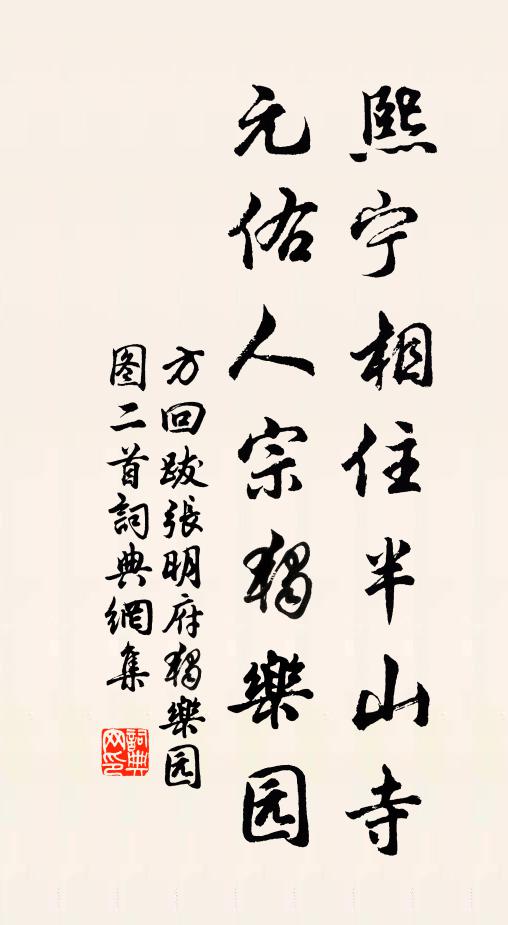 熙宁相住半山寺
元佑人宗獨樂园
方回跋張明府獨樂园
图二首詞典網集
詞典
网印